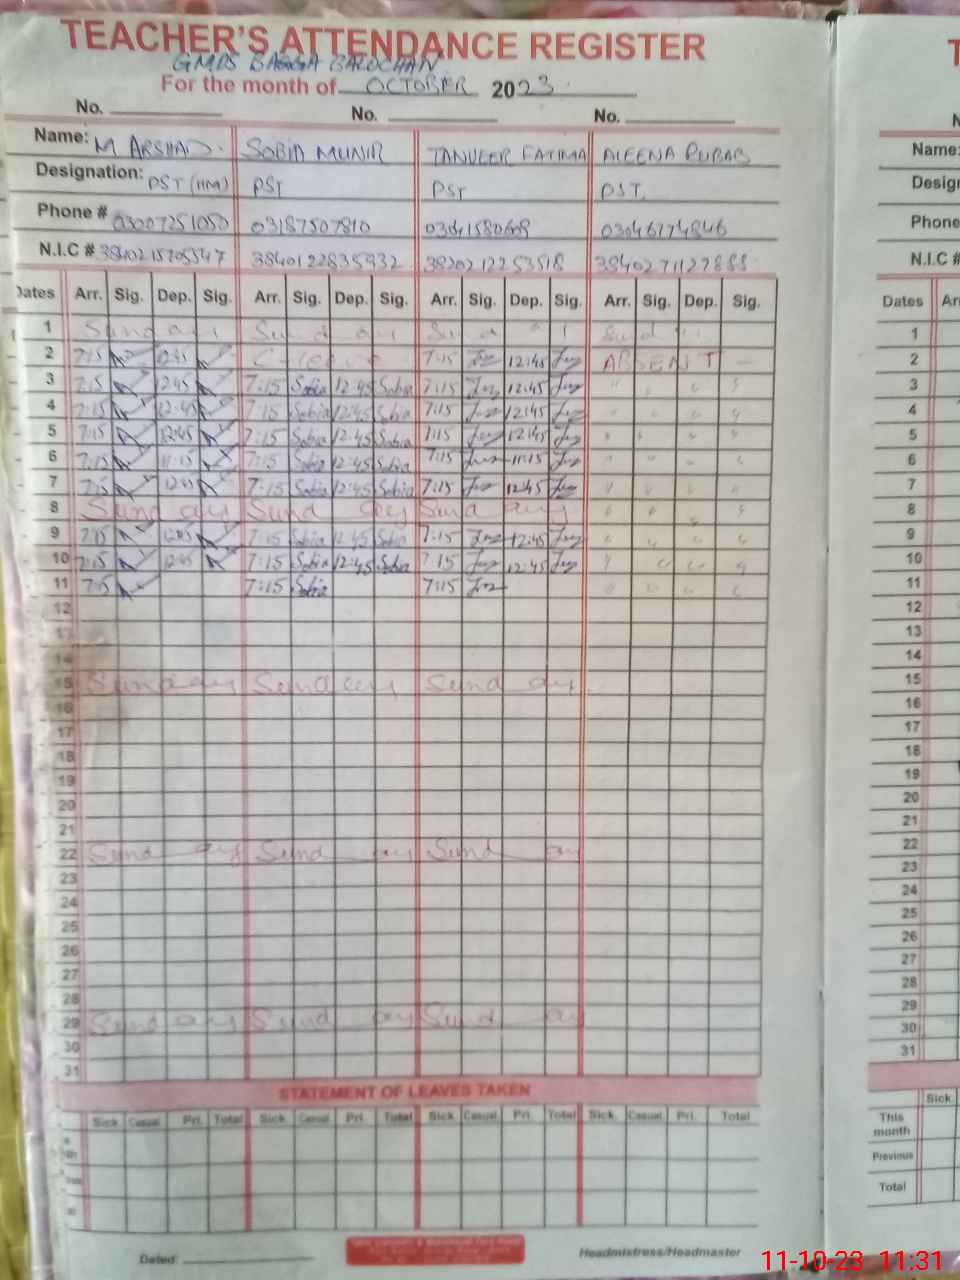 TEACHER'S ATTENDANCE REGISTER
GMPS BAGGA BALOCHAN
For the month of OCTOBER 2023
No. No. No.
Name: M ARSHAD. SOBIA MUNIR TANVEER FATIMA ALEENA RUBAB
Designation: PST (HM) PST PST PST.
Phone # 03007251050 03187507810 03041580609 03046774846
N.I.C # 3840122835932
Dates Arr. Sig. Dep. Sig. Arr. Sig. Dep. Sig. Arr. Sig. Dep. Sig. Arr. Sig. Dep. Sig.
1 Sunday Sunday Sunday Sund
2 7:15 C-leave 7:15 12:45 ABSENT -
3 7:15 12:45 7:15 Sobia 12:45 Sobia 7:15 12:45 "
4 7:15 12:45 7:15 Sobia 12:45 Sobia 7:15 12:45 "
5 7:15 12:45 7:15 Sobia 12:45 Sobia 7:15 12:45 "
6 7:15 11:15 7:15 Sobia 12:45 Sobia 7:15 11:15 "
7 7:15 12:45 7:15 Sobia 12:45 Sobia 7:15 12:45 "
8 Sunday Sunday Sunday "
9 7:15 12:45 7:15 Sobia 12:45 Sobia 7:15 12:45 "
10 7:15 12:45 7:15 Sobia 12:45 Sobia 7:15 12:45 "
11 7:15 7:15 Sobia 7:15 "
12
13
14
15 Sunday Sunday Sunday
16
17
18
19
20
21
22 Sunday Sunday Sunday
23
24
25
26
27
28
29 Sunday Sunday Sunday
30
31
STATEMENT OF LEAVES TAKEN
Sick Casual Pri. Total Sick Casual Pri. Total Sick Casual Pri. Total Sick. Casual Pri. Total
Dated: Headmistress/Headmaster
T
Name:
Phone
N.I.C #
Dates
1
2
3
4
5
6
7
8
9
10
11
12
13
14
15
16
17
18
19
20
21
22
23
24
25
26
27
28
29
30
31
Sick.
This month
Previous
Total
11-10-23 11:31